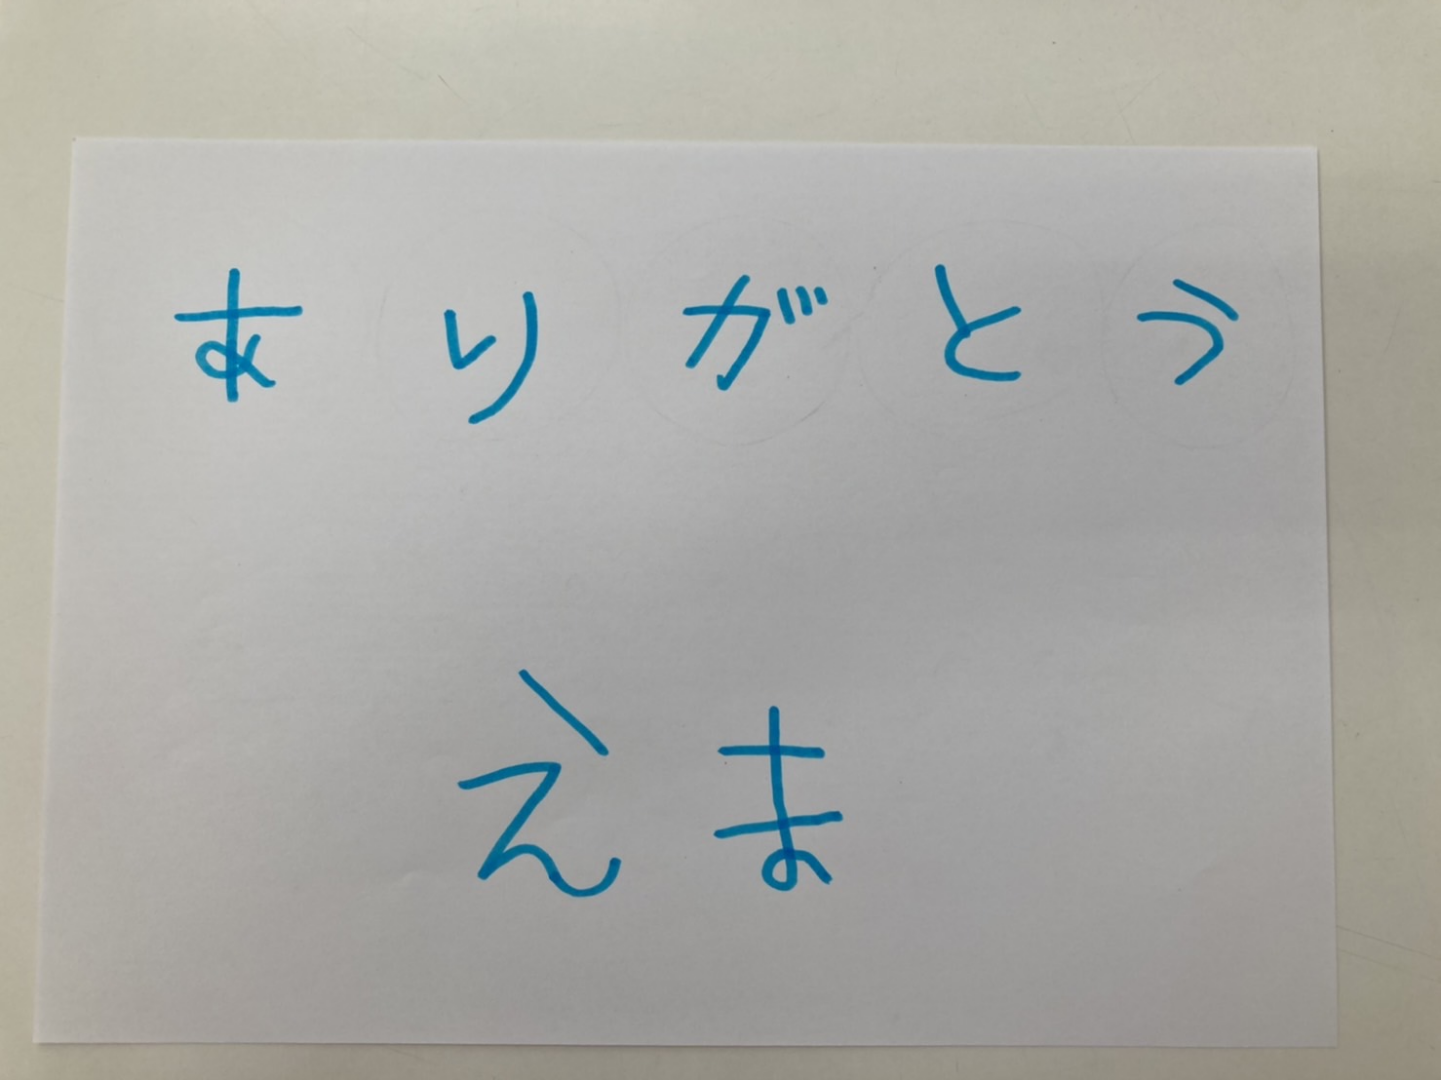 ありがとう
えま